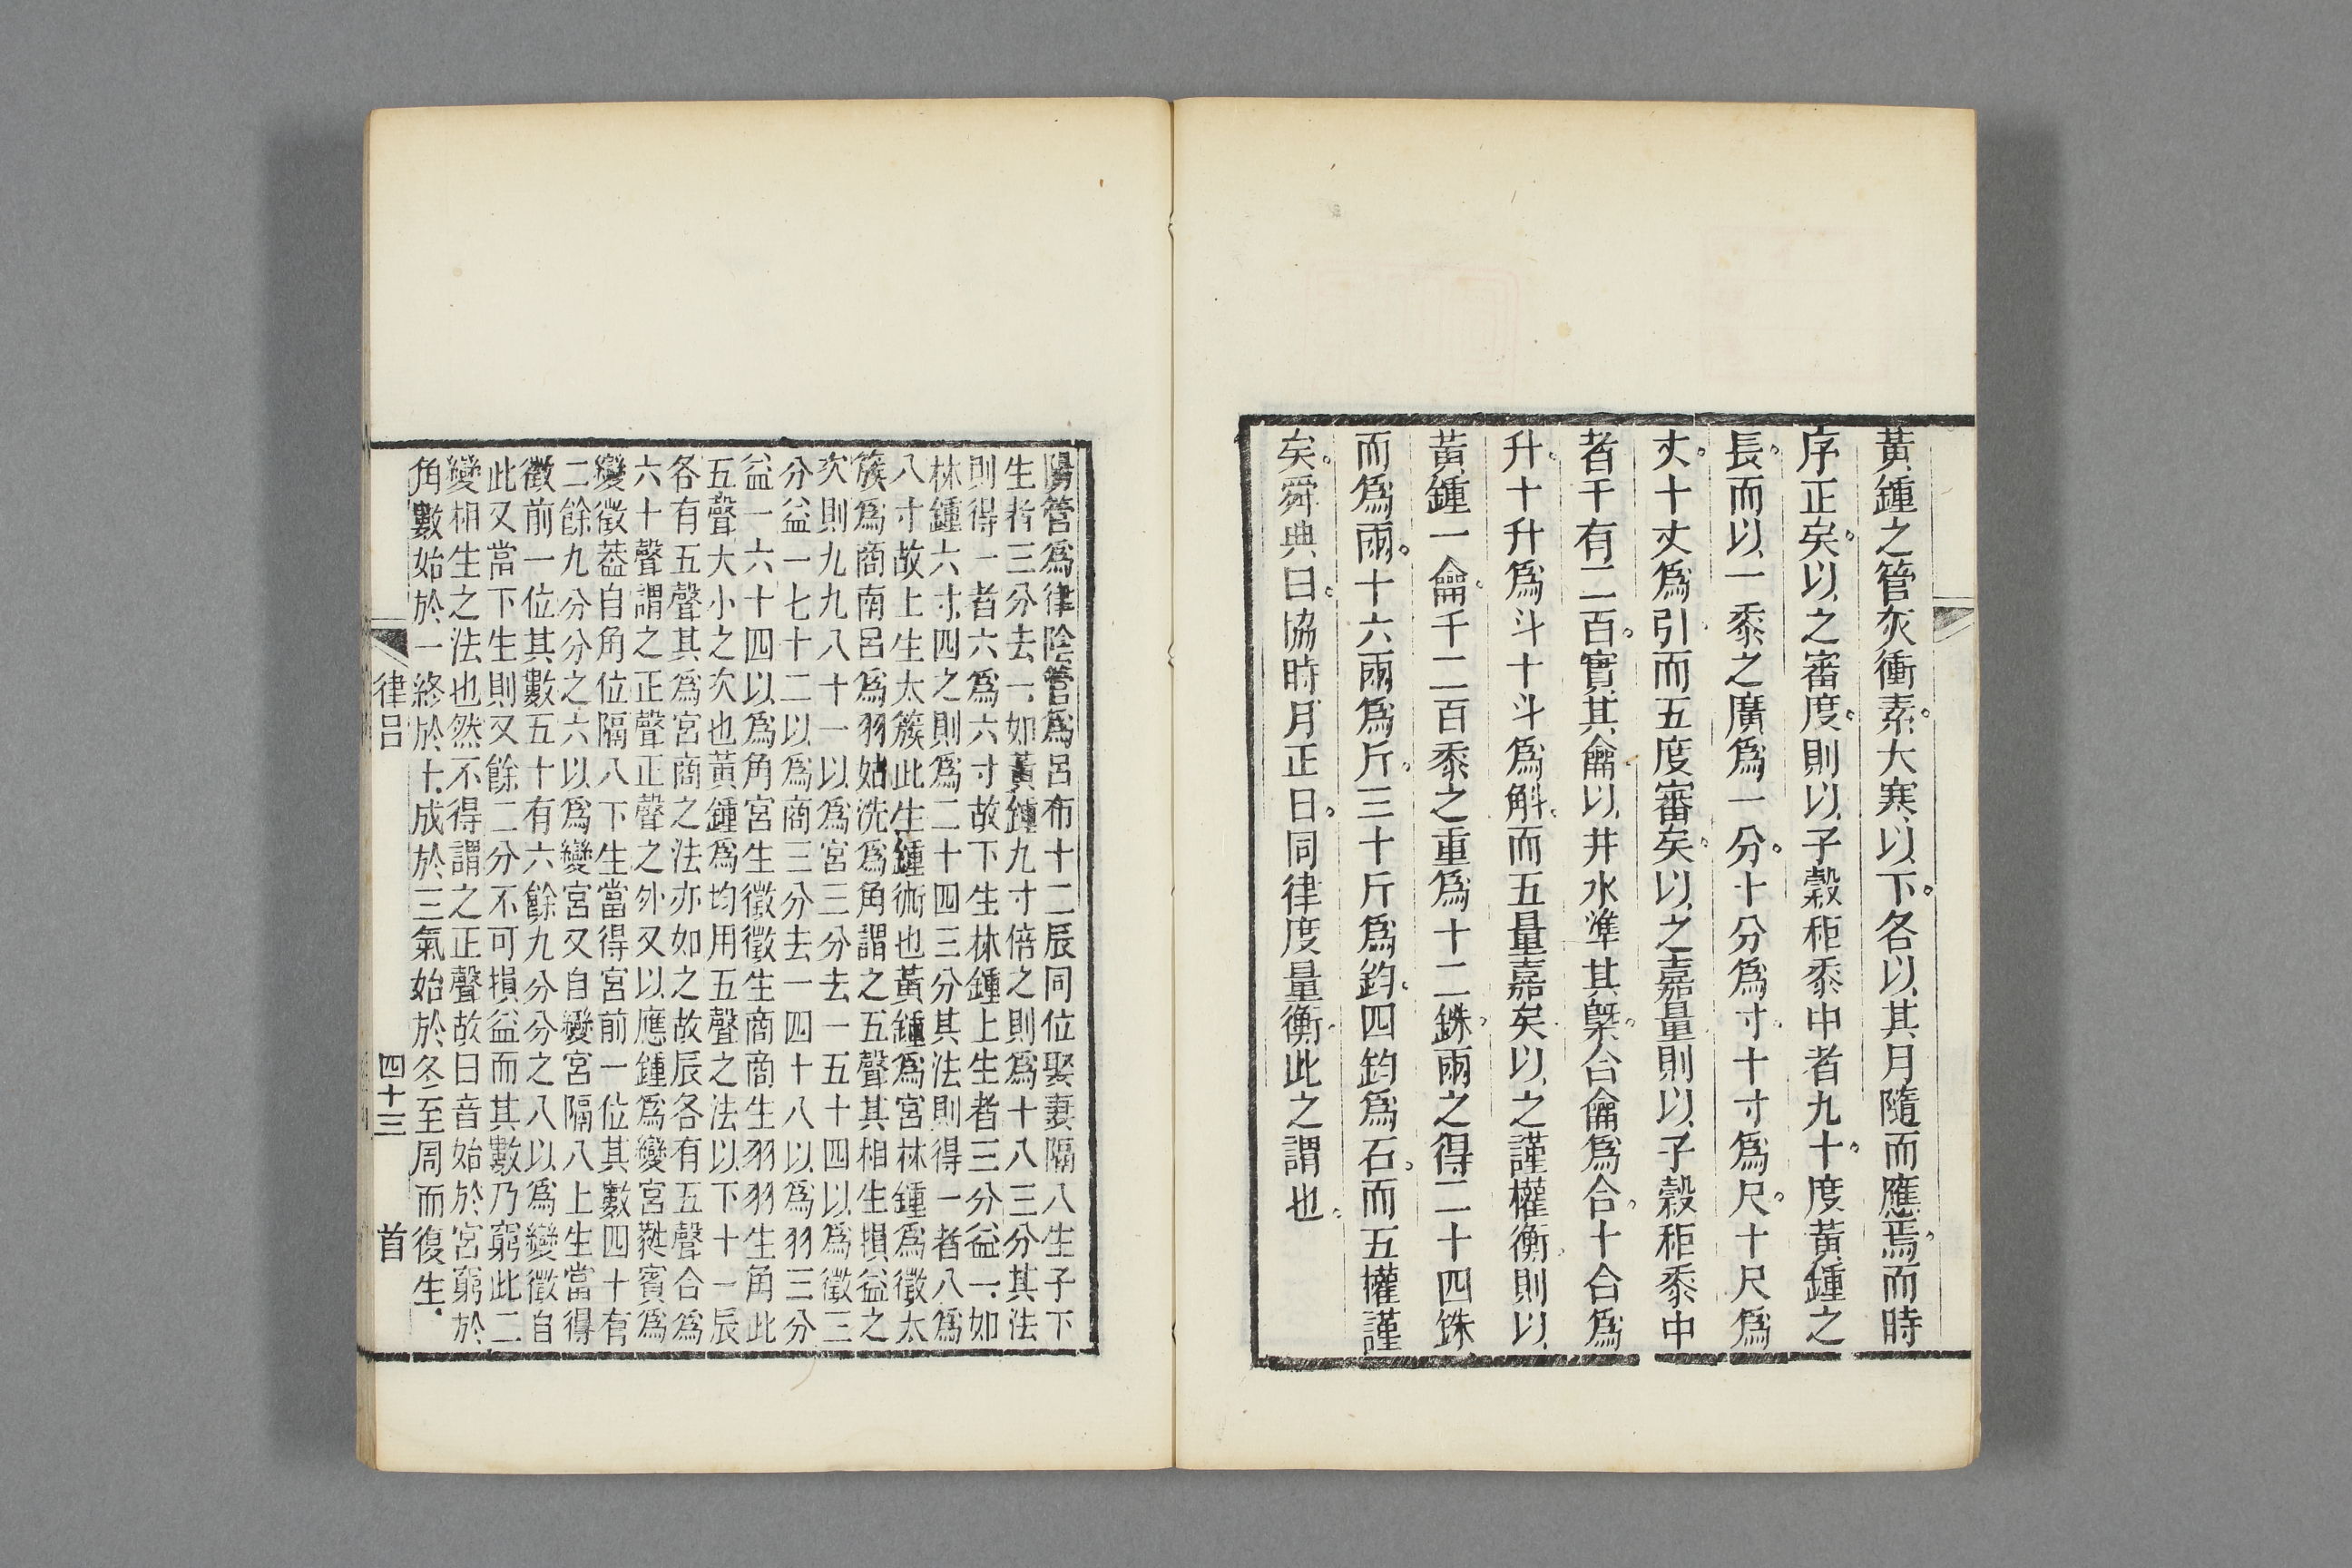 黃鍾之管灰衝素。大寒以下。各以其月隨而應焉。而時
序正矣。以之審度。則以子穀秬黍中者九十。度黃鍾之
長。而以一黍之廣爲一分。十分爲寸。十寸爲尺。十尺爲
丈。十丈爲引。而五度審矣。以之嘉量則以子穀秬黍中
者千有二百。實其龠。以井水準其槩。合龠爲合。十合爲
升。十升爲斗十斗爲斛。而五量嘉矣以之謹權衡。則以
黃鍾一龠。千二百黍之重爲十二銖。兩之得二十四銖
而爲兩。十六兩爲斤。三十斤爲鈞。四鈞爲石。而五權謹
矣。舜典曰。協時月正日。同律度量衡。此之謂也。
陽管爲律陰管爲呂布十二辰同位娶妻隔八生子下
生者三分去一如黃鍾九寸倍之則爲十八三分其法
則得一者六爲六寸故下生林鍾上生者三分益一如
林鍾六寸四之則爲二十四三分其法則得一者八爲
八寸故上生太簇此生鍾術也黃鍾爲宮林鍾爲徵太
簇爲商南呂爲羽姑洗爲角謂之五聲其相生損益之
次則九九八十一以爲宮三分去一五十四以爲徵三
分益一七十二以爲商三分去一四十八以爲羽三分
益一六十四以爲角宮生徵徵生商商生羽羽生角此
五聲大小之次也黃鍾爲均用五聲之法以下十一辰
各有五聲其爲宮商之法亦如之故辰各有五聲合爲
六十聲謂之正聲正聲之外又以應鍾爲變宮蕤賓爲
變徵葢自角位隔八下生當得宮前一位其數四十有
二餘九分分之六以爲變宮又自變宮隔八上生當得
徵前一位其數五十有六餘九分分之八以爲變徵自
此又當下生則又餘二分不可損益而其數乃窮此二
變相生之法也然不得謂之正聲故曰音始於宮窮於
角數始於一終於十成於三氣始於冬至周而復生
律呂 四十三 首